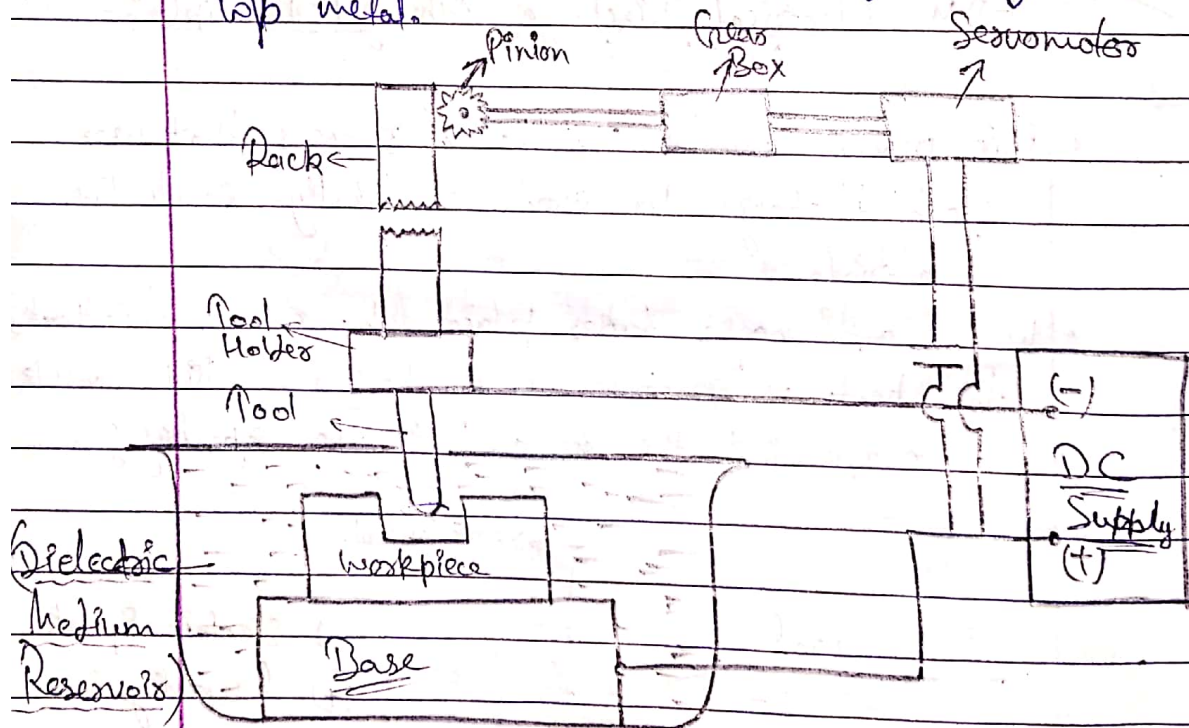 top metal.
Pinion
Gear
Box
Servomotor
Rack
Tool
Holder
Tool
(-)
DC
Supply
(+)
Dielectric
Medium
Reservoir)
Workpiece
Base